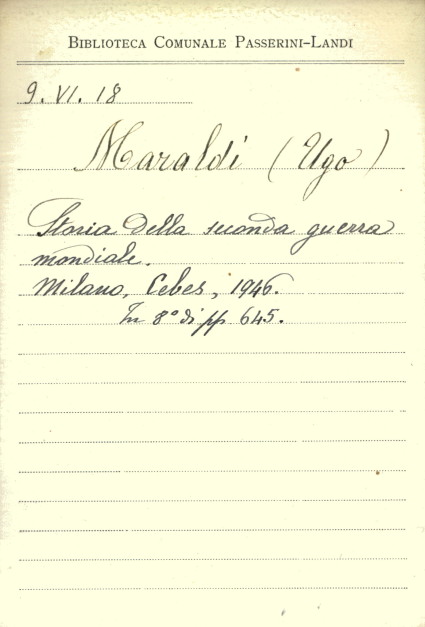 BIBLIOTECA COMUNALE PASSERINI-LANDI
9. VI. 18
Maraldi (Ugo)
Storia della seconda guerra
mondiale.
Milano, Cebes, 1946.
In 8° di pp 645.